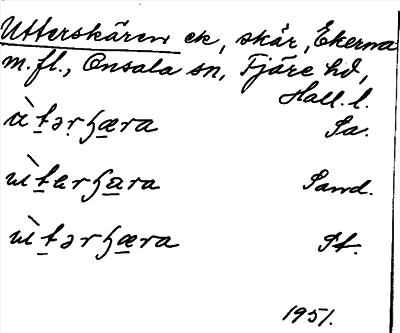 Utterskären ek, skär, Ekerna
m.fl., Onsala sn, Fjäre hd,
Hall. l.
ùtərʃæra Sa.
ùtɐrʃara Sand.
ùtərʃæra St.
1951.